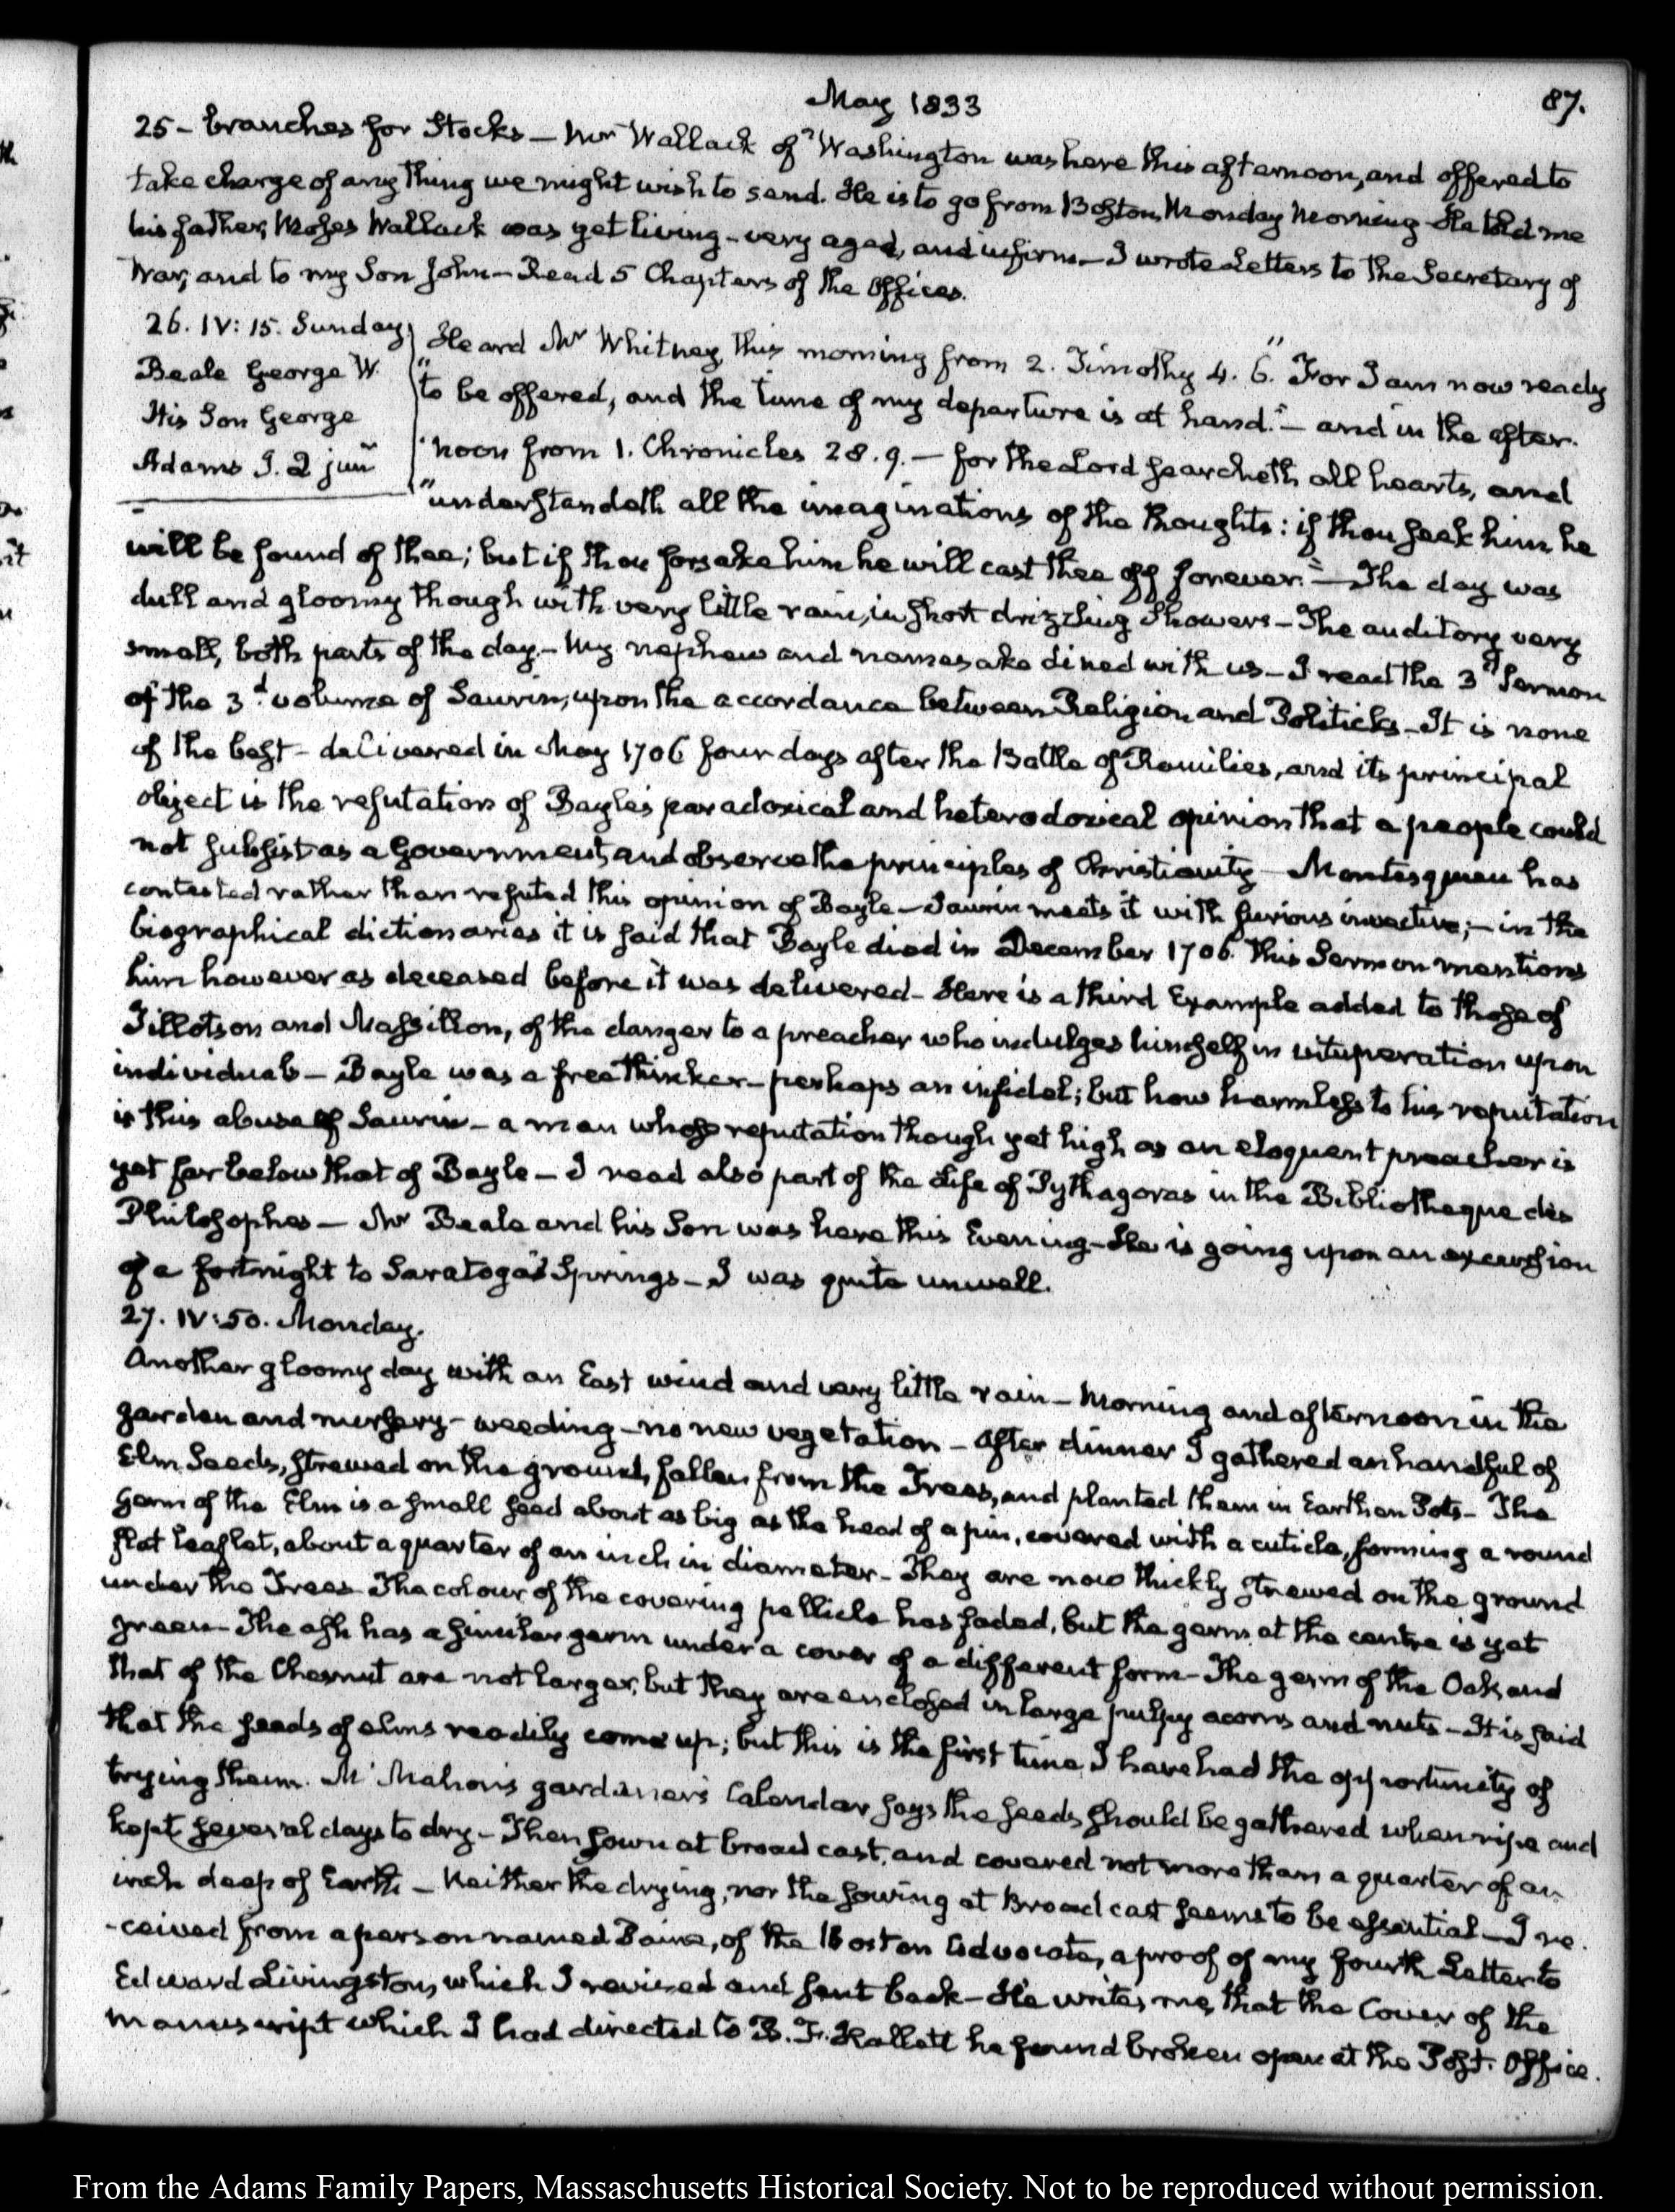 May 1833
87.
25 - branches for Stocks — Mr. Wallack of Washington was here this afternoon, and offered to
take charge of any thing we might wish to send. He is to go from Boston, Monday Morning - He told me
his father, Moses Wallack was yet living - very aged, and infirm — I wrote Letters to the Secretary of
War, and to my Son John — Read 5 Chapters of the Offices.
26. IV: 15. Sunday
Beale George W.
His Son George
Adams I. 2 junr
Heard Mr Whitney this morning from 2. Timothy 4. 6. "For I am now ready
"to be offered, and the time of my departure is at hand." — and in the after-
-noon from 1. Chronicles 28. 9. — for the Lord searcheth all hearts, and
"understandeth all the imaginations of the thoughts: if thou seek him, he
will be found of thee; but if thou forsake him he will cast thee off forever." — The day was
dull and gloomy though with very little rain, in short drizzling showers — The auditory very
small, both parts of the day. — My nephew and namesake dined with us — I read the 3d Sermon
of the 3d volume of Saurin, upon the accordance between Religion and Politicks — It is none
of the best — delivered in May 1706 four days after the Battle of Ramilies, and its principal
object is the refutation of Bayle's paradoxical and heterodoxical opinion that a people could
not subsist as a Government, and observe the principles of Christianity — Montesquieu has
contested rather than refuted this opinion of Bayle — Saurin meets it with furious invective; — in the
biographical dictionaries it is said that Bayle died in December 1706. This Sermon mentions
him however as deceased before it was delivered — Here is a third Example added to those of
Tillotson and Massillon, of the danger to a preacher who indulges himself in vituperation upon
individuals — Bayle was a free thinker — perhaps an infidel; but how harmless to his reputation
is this abuse of Saurin — a man whose reputation though yet high as an eloquent preacher is
yet far below that of Bayle — I read also part of the Life of Pythagoras in the Bibliotheque des
Philosophes — Mr Beale and his Son was here this Evening — He is going upon an excursion
of a fortnight to Saratoga Springs — I was quite unwell.
27. IV: 50. Monday.
Another gloomy day with an East wind and very little rain — Morning and afternoon in the
garden and nursery — weeding — no new vegetation — After dinner I gathered an handful of
Elm Seeds, strewed on the ground, fallen from the Trees, and planted them in Earthen Pots — The
germ of the Elm is a small seed about as big as the head of a pin, covered with a cuticle, forming a round
flat leaflet, about a quarter of an inch in diameter — They are now thickly strewed on the ground
under the Trees — The colour of the covering pellicle has faded, but the germ at the centre is yet
green — The ash has a similar germ under a cover of a different form — The germ of the Oak, and
that of the Chesnut are not larger, but they are enclosed in large pulpy acorns and nuts — It is said
that the seeds of elms readily come up; but this is the first time I have had the opportunity of
trying them. McMahon's gardener's Calendar says the seeds should be gathered when ripe and
kept several days to dry — Then sown at broad cast, and covered not more than a quarter of an
inch deep of Earth — Neither the drying, nor the sowing at Broad cast seems to be essential — I re-
-ceived from a person named Paine, of the Boston Advocate, a proof of my fourth Letter to
Edward Livingston, which I revised and sent back — He writes me, that the Cover of the
manuscript which I had directed to B. F. Hallett he found broken open at the Post-Office.
From the Adams Family Papers, Massachusetts Historical Society. Not to be reproduced without permission.